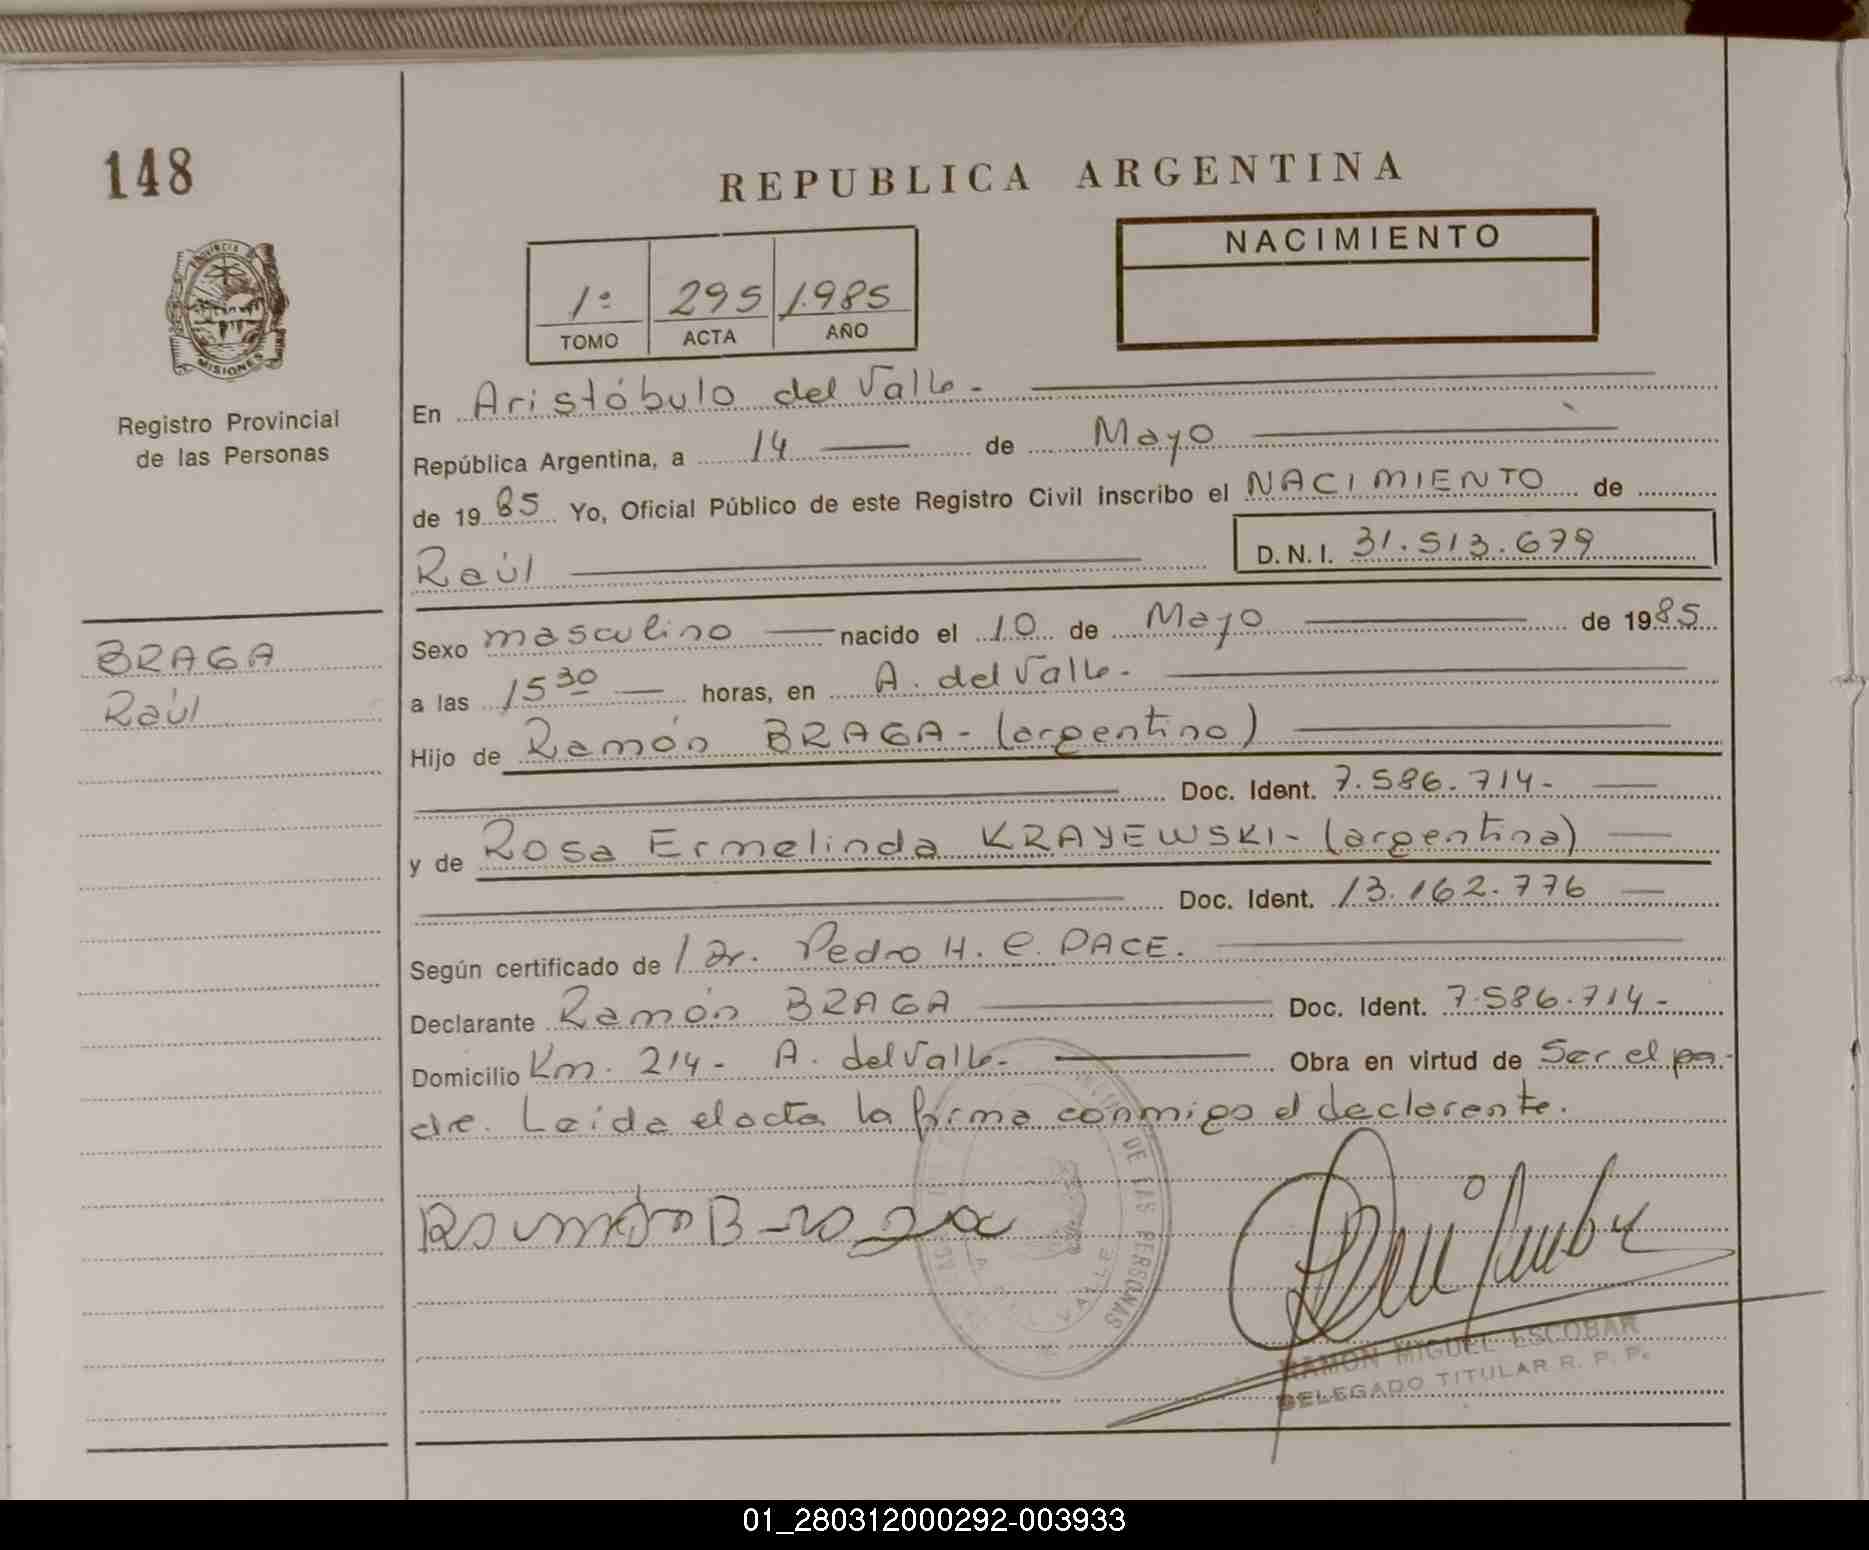 148
REPUBLICA ARGENTINA
PROVINCIA DE
MISIONES
Registro Provincial
de las Personas
1º 295 1.985
TOMO ACTA AÑO
NACIMIENTO
En Aristóbulo del Valle.-
República Argentina, a 14 de Mayo
de 1985 Yo, Oficial Público de este Registro Civil inscribo el NACIMIENTO de
Raúl D.N.I. 31.513.679
BRAGA
Raúl
Sexo masculino nacido el 10 de Mayo de 1985
a las 15 30 horas, en A. del Valle.-
Hijo de Ramón BRAGA - (argentino)
Doc. Ident. 7.586.714-
y de Rosa Ermelinda KRAYEWSKI - (argentina)
Doc. Ident. 13.162.776
Según certificado de / Dr. Pedro H. C. PACE.
Declarante Ramón BRAGA Doc. Ident. 7.586.714-
Domicilio Km. 214- A. del Valle.- Obra en virtud de Ser el pa-
dre. Leída el acta la firma conmigo el declarente.
Ramón Braga
DE LAS PERSONAS
A. DEL VALLE
RAMON MIGUEL ESCOBAR
DELEGADO TITULAR R. P. P.
01_280312000292-003933